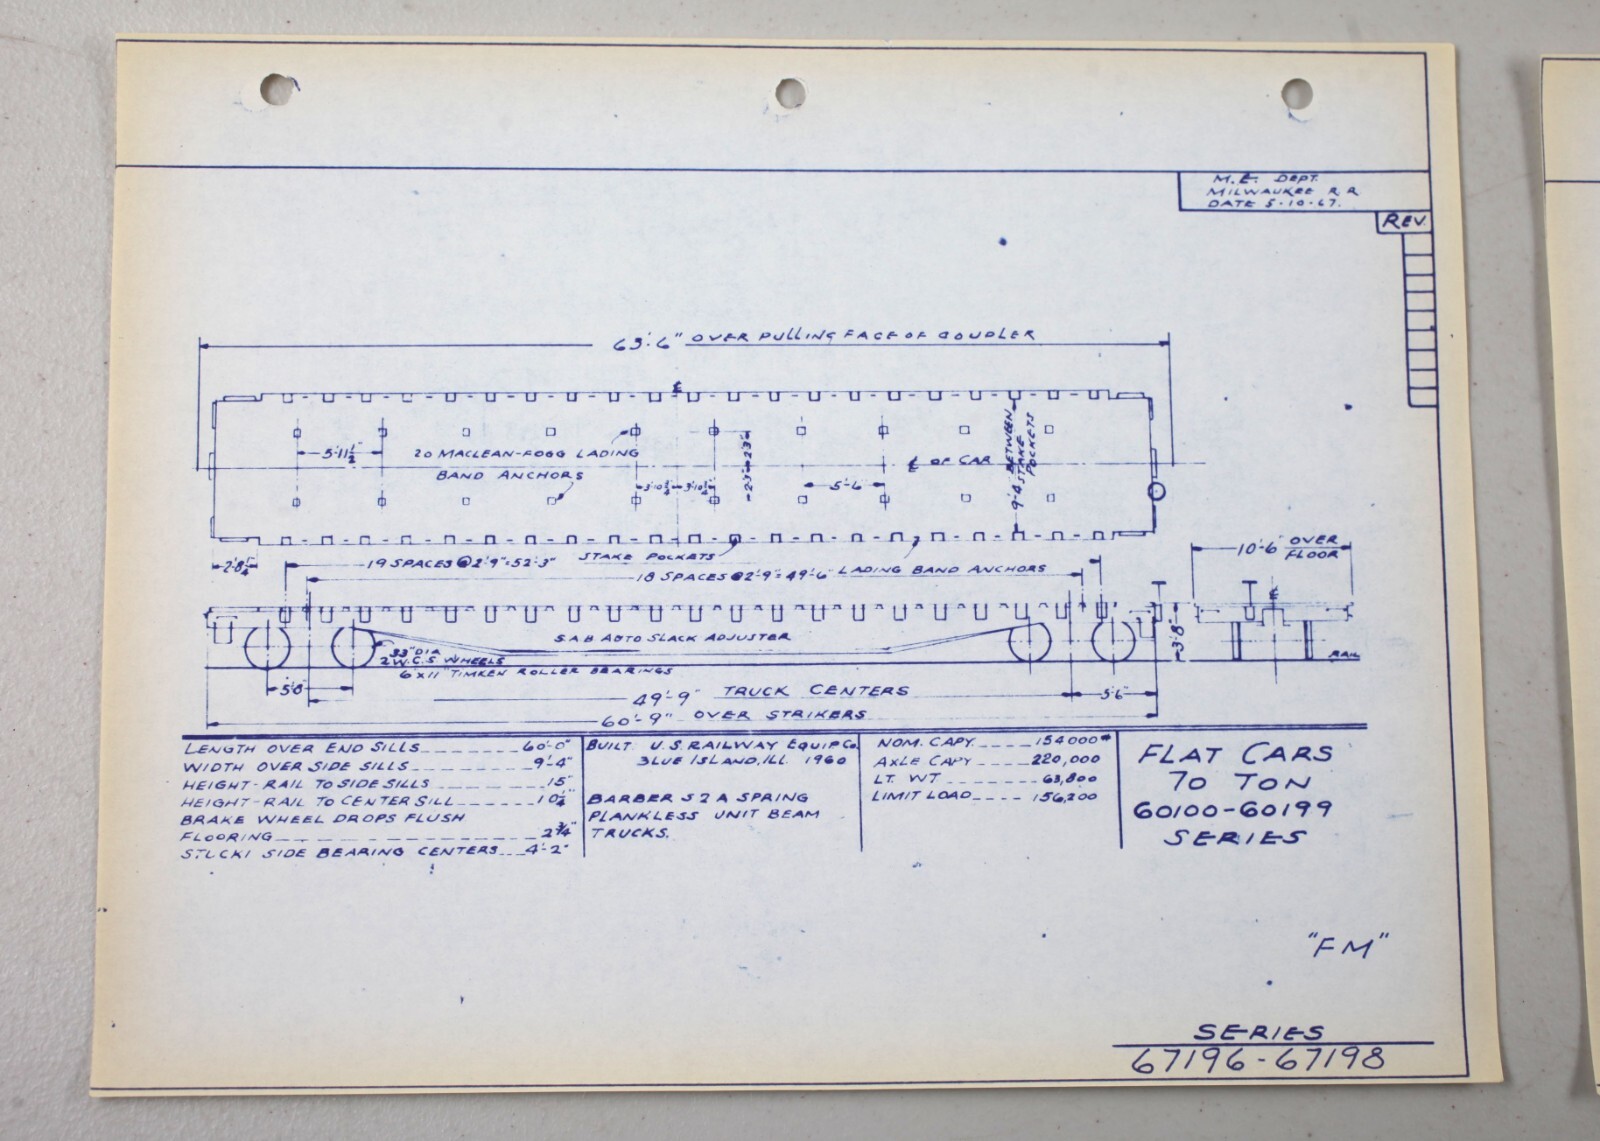 M. E. DEPT.
MILWAUKEE R.R.
DATE 5-10-67.
REV.
63'-6" OVER PULLING FACE OF COUPLER
℄
5'-11½"
20 MACLEAN-FOGG LADING
BAND ANCHORS
3'10¾" 3'10¾"
2'-3" 2'-3"
5'-6"
℄ OF CAR
9'-4" BETWEEN
STAKE
POCKETS
2'-8¼"
19 SPACES @ 2'-9" = 52'-3"
STAKE POCKETS
18 SPACES @ 2'-9" = 49'-6" LADING BAND ANCHORS
10'-6" OVER
FLOOR
℄
S A B AUTO SLACK ADJUSTER
33" DIA
2 W.C.S WHEELS
6 X 11" TIMKEN ROLLER BEARINGS
3'-8"
RAIL
5'-8"
49'-9" TRUCK CENTERS
5'-6"
60'-9" OVER STRIKERS
LENGTH OVER END SILLS 60'-0"
WIDTH OVER SIDE SILLS 9'-4"
HEIGHT-RAIL TO SIDE SILLS 15"
HEIGHT-RAIL TO CENTER SILL
BRAKE WHEEL DROPS FLUSH
FLOORING 2¾"
STUCKI SIDE BEARING CENTERS 4'-2"
BUILT: U.S. RAILWAY EQUIP CO.
BLUE ISLAND, ILL. 1960
BARBER S 2 A SPRING
PLANKLESS UNIT BEAM
TRUCKS.
NOM. CAPY. 154000#
AXLE CAPY 220,000
LT. WT 63,800
LIMIT LOAD 156,200
FLAT CARS
70 TON
60100-60199
SERIES
"FM"
SERIES
67196-67198